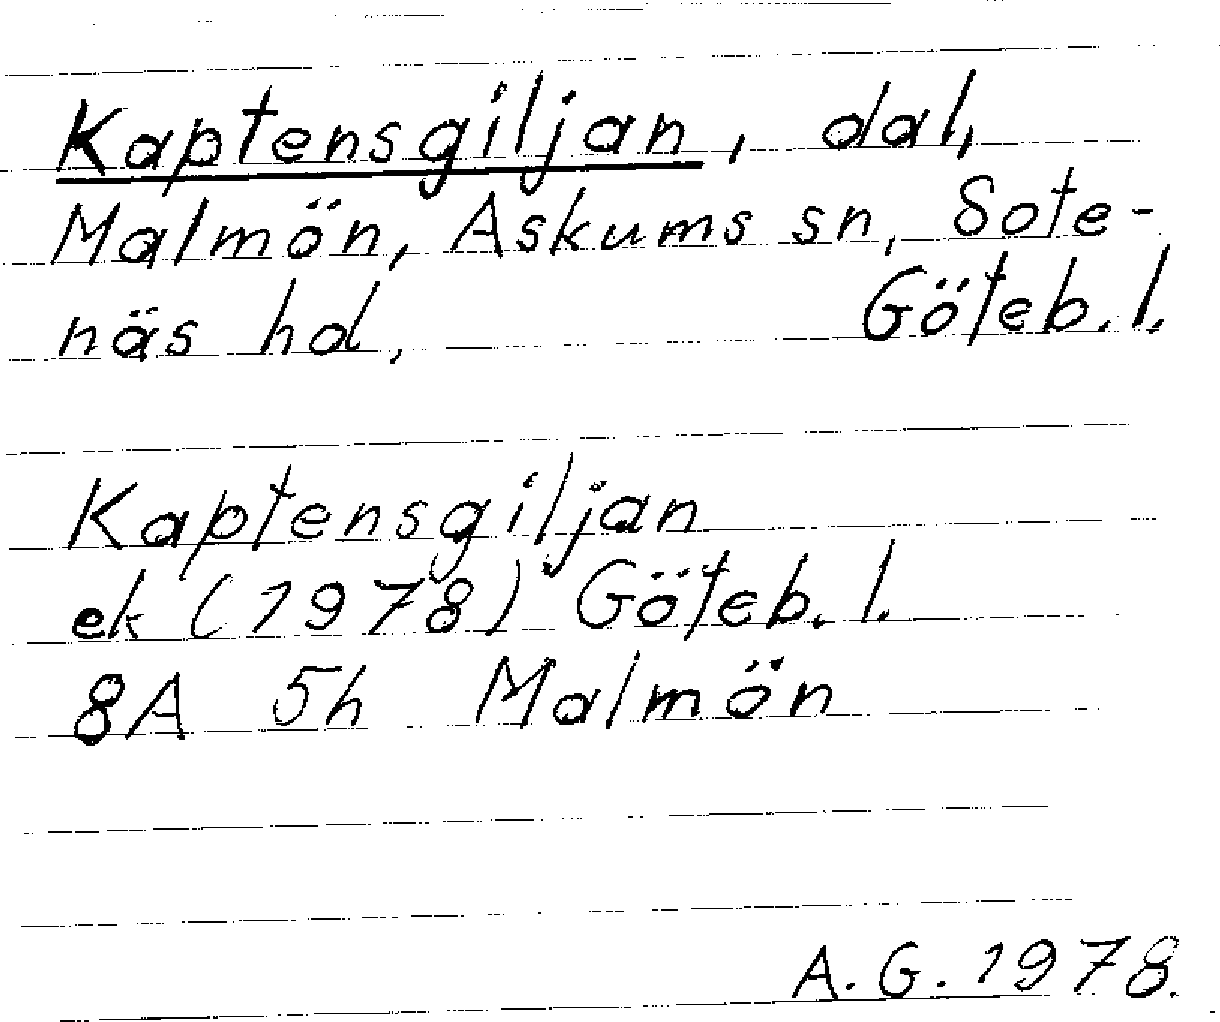 Kaptensgiljan, dal,
Malmön, Askums sn, Sote-
näs hd, Göteb. l.
Kaptensgiljan
ek (1978) Göteb. l.
8A 5h Malmön
A. G. 1978.